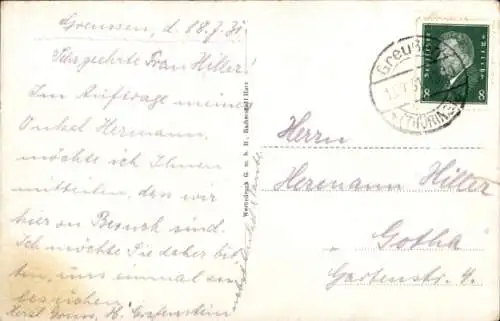 Greussen, d. 18.7.31.
Sehr geehrte Frau Hiller!
Im Auftrage meines
Onkel Hermann,
möchte ich Ihnen
mitteilen, das wir
hier zu Besuch sind.
Ich möchte Sie daher bit-
ten, uns einmal
besuchen.
Herzl. Grüss, H. Grafenstein
Werterdruck G. m. b. H.
Greuß
(THÜRING)
Deutsches Reich
8 8
Herrn
Hermann Hiller
Gotha
Gartenstr. 4.